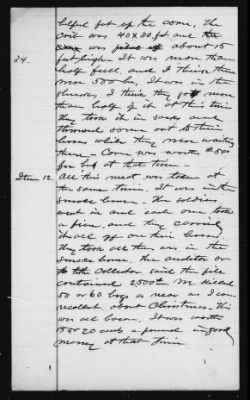 helped put up the corn, the
crib was 40 x 30 ft and the
corn was about 15
feet high. It was more than
half full, and I think there
was 500 bu. It was in the
shucks. I think they got more
than half of it at this time
they took it in sacks and
throwed some out to their
horses while they were waiting
there. Corn was worth $5.00
for bu at that time.
Item 12. All this meat was taken at
the same time. It was in the
smoke house. The soldiers
went in and each one took
a piece, and they carried
it all off on their horses
they took all there was in the
smoke house. The auditor or
the collector said the file
contained 2500 lbs. We killed
50 or 60 hogs as near as I can
recollect about Christmas. This
was all bacon. It was worth
15 or 20 cents a pound in good
money at that time